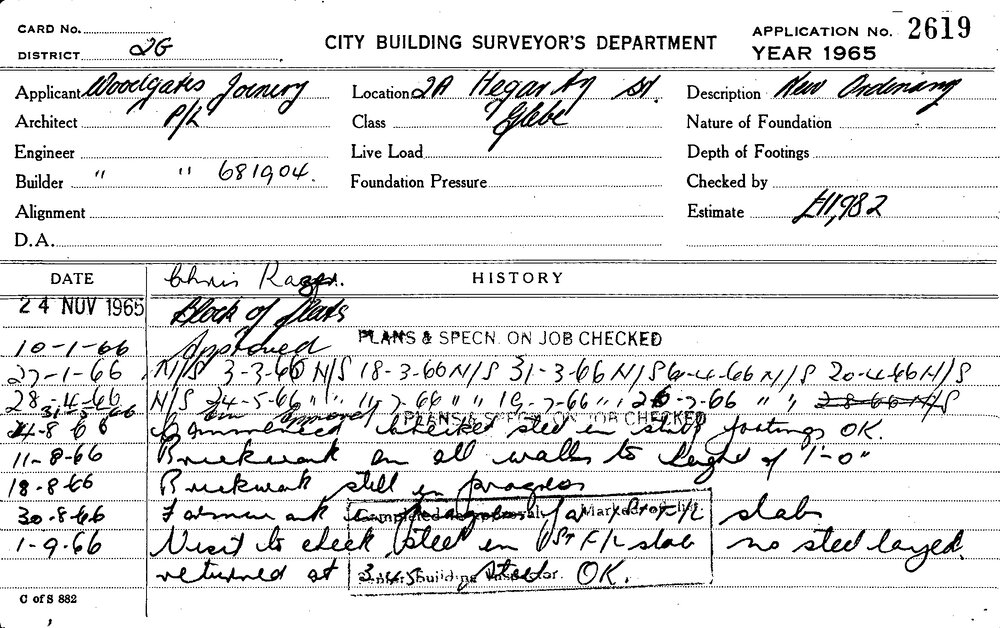 CARD No.
DISTRICT 2G
CITY BUILDING SURVEYOR'S DEPARTMENT
APPLICATION No. 2619
YEAR 1965
Applicant Woodgates Joinery
Location 2A Hegarty St.
Description New Ordinary
Architect P/L
Class Glebe
Nature of Foundation
Engineer
Live Load
Depth of Footings
Builder " " 681904.
Foundation Pressure
Checked by
Alignment
Estimate £11,982
D.A.
DATE
Chris
HISTORY
24 NOV 1965 Block of flats
PLANS & SPECN. ON JOB CHECKED
10-1-66 Approved
27-1-66 N/S 3-3-66 N/S 18-3-66 N/S 31-3-66 N/S 6-4-66 N/S 20-4-66 N/S
28-4-66 N/S 24-5-66 " " 11-7-66 " " 19-7-66 " " 26-7-66 " " 2-8-66 N/S
31-5-66
PLANS & SPECN. ON JOB CHECKED
4-8-66 Commenced checked steel in strip footings OK.
11-8-66 Brickwork on all walls to height of 1'-0"
18-8-66 Brickwork still in progress
30-8-66 Formwork in progress for 1st F/L slab
Completed as approval. Marked off list
1-9-66 Visit to check steel in 1st F/L slab no steel layed.
returned at 3.45 steel OK.
Senior Building Inspector.
C of S 882